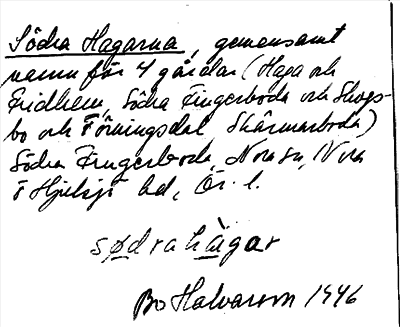 Södra Hagarna, gemensamt
namn för 4 gårdar (Haga och
Fridhem, Södra Fingerboda och Skogs-
bo och Förningsdal, Skärmarboda)
Södra Fingerboda, Nora sn, Nora
o Hjulsjö bd, Ör. l.
sødra hàgar
Bo Halvarson 1946